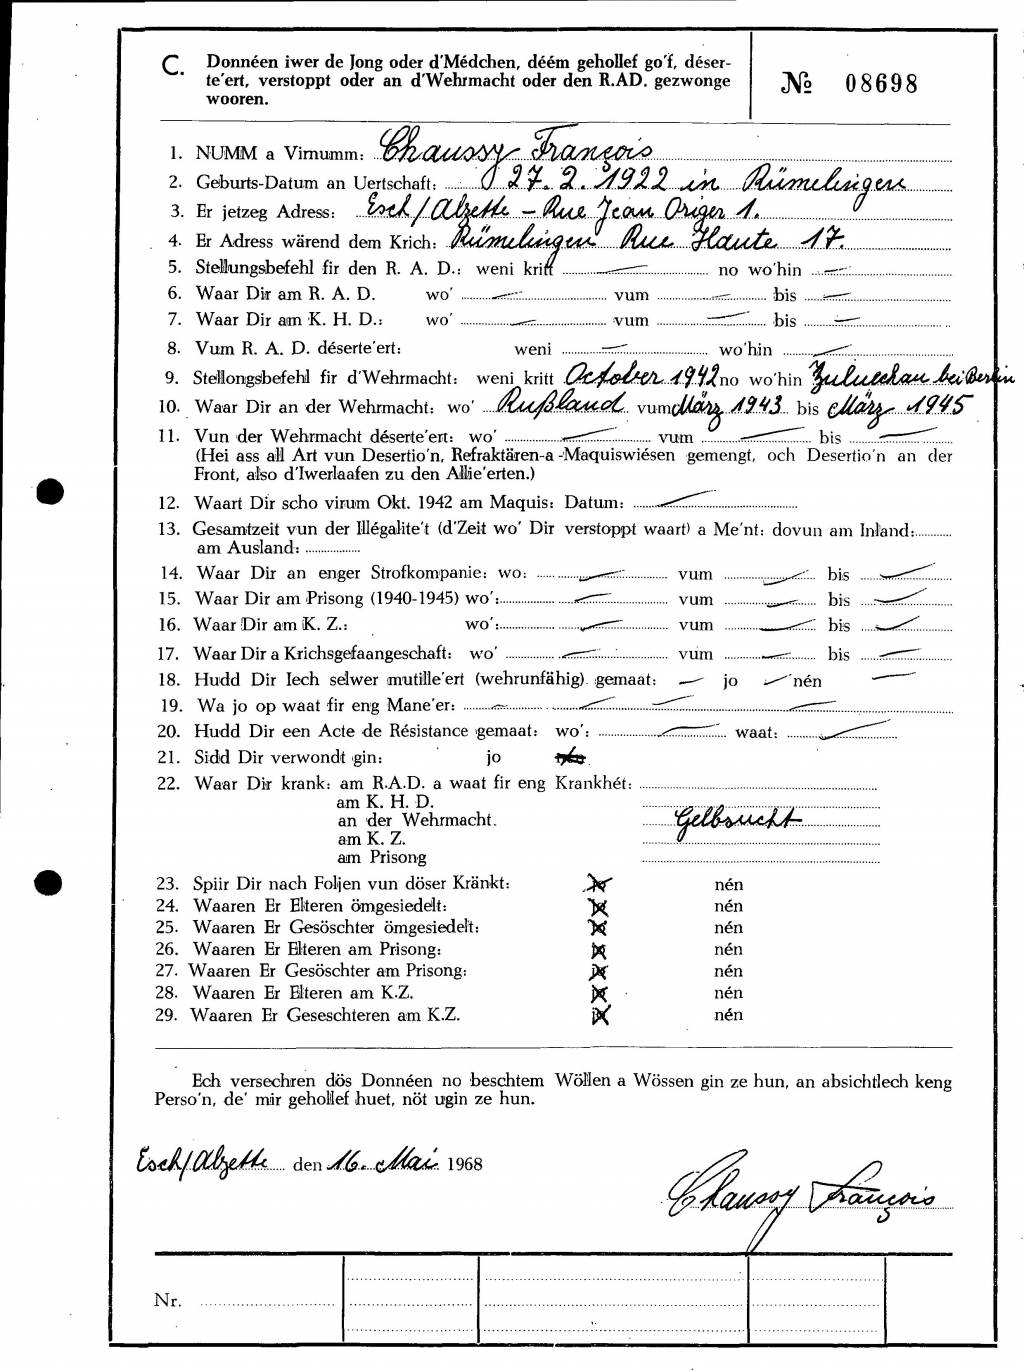 C. Donnéen iwer de Jong oder d'Médchen, déém gehollef go'f, déser-
te'ert, verstoppt oder an d'Wehrmacht oder den R.AD. gezwonge
wooren.
№ 08698
1. NUMM a Virnumm: Chaussy François
2. Geburts-Datum an Uertschaft: 27. 2. 1922 in Rümelingen
3. Er jetzeg Adress: Esch/Alzette - Rue Jean Origer 1.
4. Er Adress wärend dem Krich: Rümelingen Rue Haute 17.
5. Stellungsbefehl fir den R. A. D.: weni kritt — no wo'hin —
6. Waar Dir am R. A. D. wo' — vum — bis —
7. Waar Dir am K. H. D.: wo' — vum — bis —
8. Vum R. A. D. déserte'ert: weni — wo'hin —
9. Stellongsbefehl fir d'Wehrmacht: weni kritt October 1942 no wo'hin bei Berlin
10. Waar Dir an der Wehrmacht: wo' Rußland vum März 1943 bis März 1945
11. Vun der Wehrmacht déserte'ert: wo' — vum — bis —
(Hei ass all Art vun Desertio'n, Refraktären-a -Maquiswiésen gemengt, och Desertio'n an der
Front, also d'Iwerlaafen zu den Allie'erten.)
12. Waart Dir scho virum Okt. 1942 am Maquis: Datum: —
13. Gesamtzeit vun der Illégalite't (d'Zeit wo' Dir verstoppt waart) a Me'nt: dovun am Inland:
am Ausland:
14. Waar Dir an enger Strofkompanie: wo: — vum — bis —
15. Waar Dir am Prisong (1940-1945) wo': — vum — bis —
16. Waar Dir am K. Z.: wo': — vum — bis —
17. Waar Dir a Krichsgefaangeschaft: wo' — vum — bis —
18. Hudd Dir Iech selwer mutille'ert (wehrunfähig) gemaat: — jo — nén —
19. Wa jo op waat fir eng Mane'er: — — — —
20. Hudd Dir een Acte de Résistance gemaat: wo': — waat: —
21. Sidd Dir verwondt gin: jo nén
22. Waar Dir krank: am R.A.D. a waat fir eng Krankhét:
am K. H. D.
an der Wehrmacht. Gelbsucht
am K. Z.
am Prisong
23. Spiir Dir nach Foljen vun döser Kränkt: jo nén
24. Waaren Er Elteren ömgesiedelt: jo nén
25. Waaren Er Gesöschter ömgesiedelt: jo nén
26. Waaren Er Elteren am Prisong: jo nén
27. Waaren Er Gesöschter am Prisong: jo nén
28. Waaren Er Elteren am K.Z. jo nén
29. Waaren Er Geseschteren am K.Z. jo nén
Ech versechren dös Donnéen no beschtem Wöllen a Wössen gin ze hun, an absichtlech keng
Perso'n, de' mir gehollef huet, nöt ugin ze hun.
Esch/Alzette den 16. Mai 1968
Chaussy François
Nr.